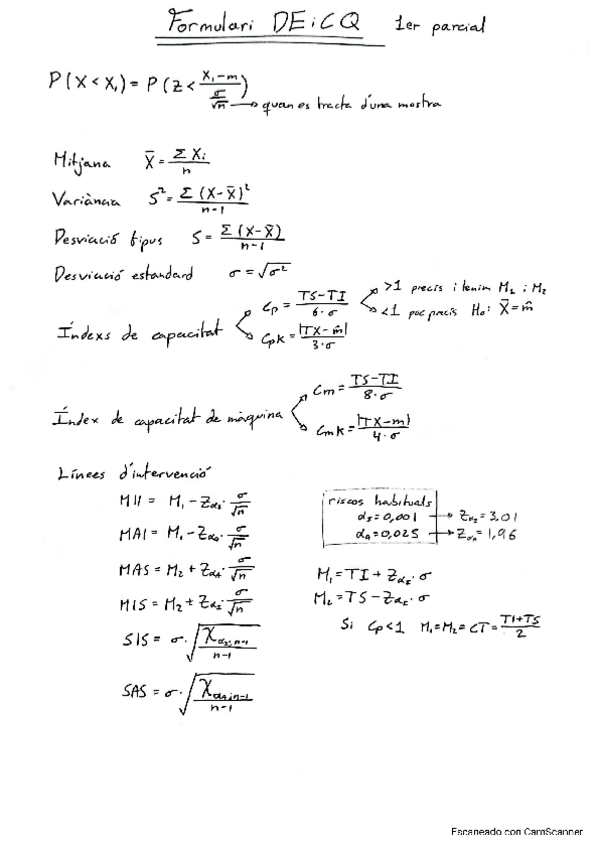 Formulari DEiCQ 1er parcial
P(X < X₁) = P(Z < (X₁-m)/(σ/√n))
→ quan es tracta d'una mostra
Mitjana X̄ = ΣXᵢ/n
Variància S² = Σ(X-X̄)²/n-1
Desviació tipus S = Σ(X-X̄)/n-1
Desviació estandard σ = √σ²
Índexs de capacitat
Cp = TS-TI/6·σ
>1 precís i tenim M₁ i M₂
<1 poc precís H₀: X̄ = m̂
CpK = |TX-m̂|/3·σ
Índex de capacitat de màquina
Cm = TS-TI/8·σ
CmK = |TX-m|/4·σ
Línees d'intervenció
MII = M₁ - Zαs · σ/√n
MAI = M₁ - Zαa · σ/√n
MAS = M₂ + ZαA · σ/√n
MIS = M₂ + Zαs · σ/√n
SIS = σ · √(χαs,n-1/n-1)
SAS = σ · √(χαA,n-1/n-1)
riscos habituals
αs = 0,001 → Zαs = 3,01
αA = 0,025 → ZαA = 1,96
M₁ = TI + Zαs · σ
M₂ = TS - Zαs · σ
Si Cp<1 M₁=M₂=CT= TI+TS/2
Escaneado con CamScanner